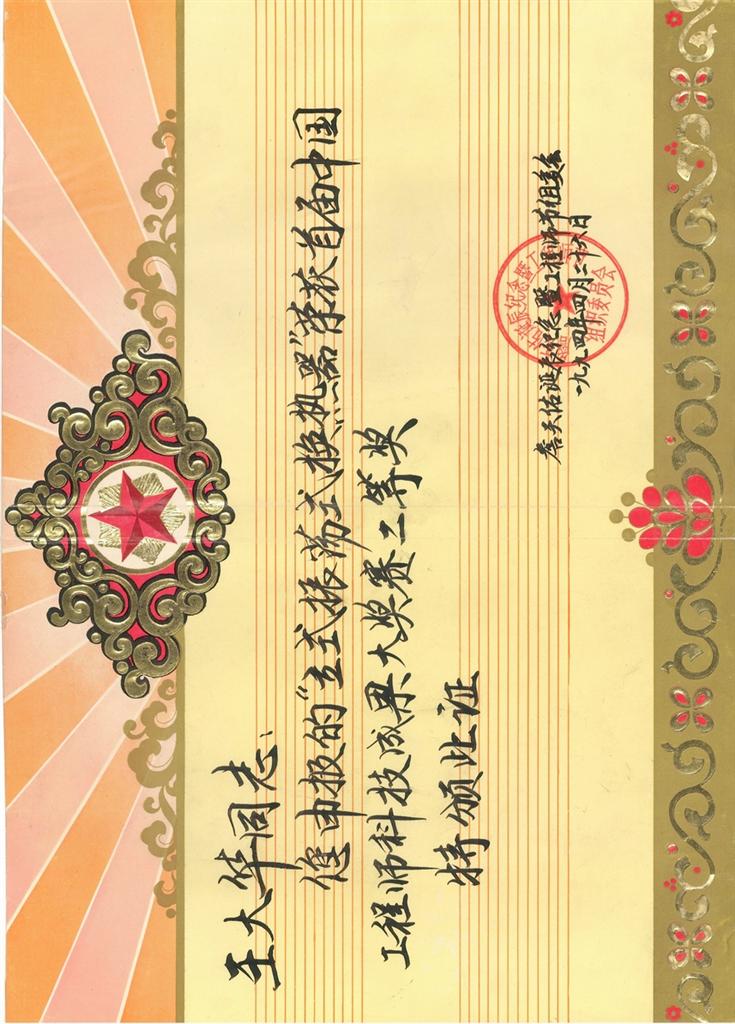 王大华同志:
您申报的"立式振荡式换热器"荣获首届中国
工程师科技成果大奖赛二等奖
特颁此证
詹天佑诞辰纪念暨工程师节组委会
一九九四年四月二十六日
诞辰纪念暨工
组织委员会